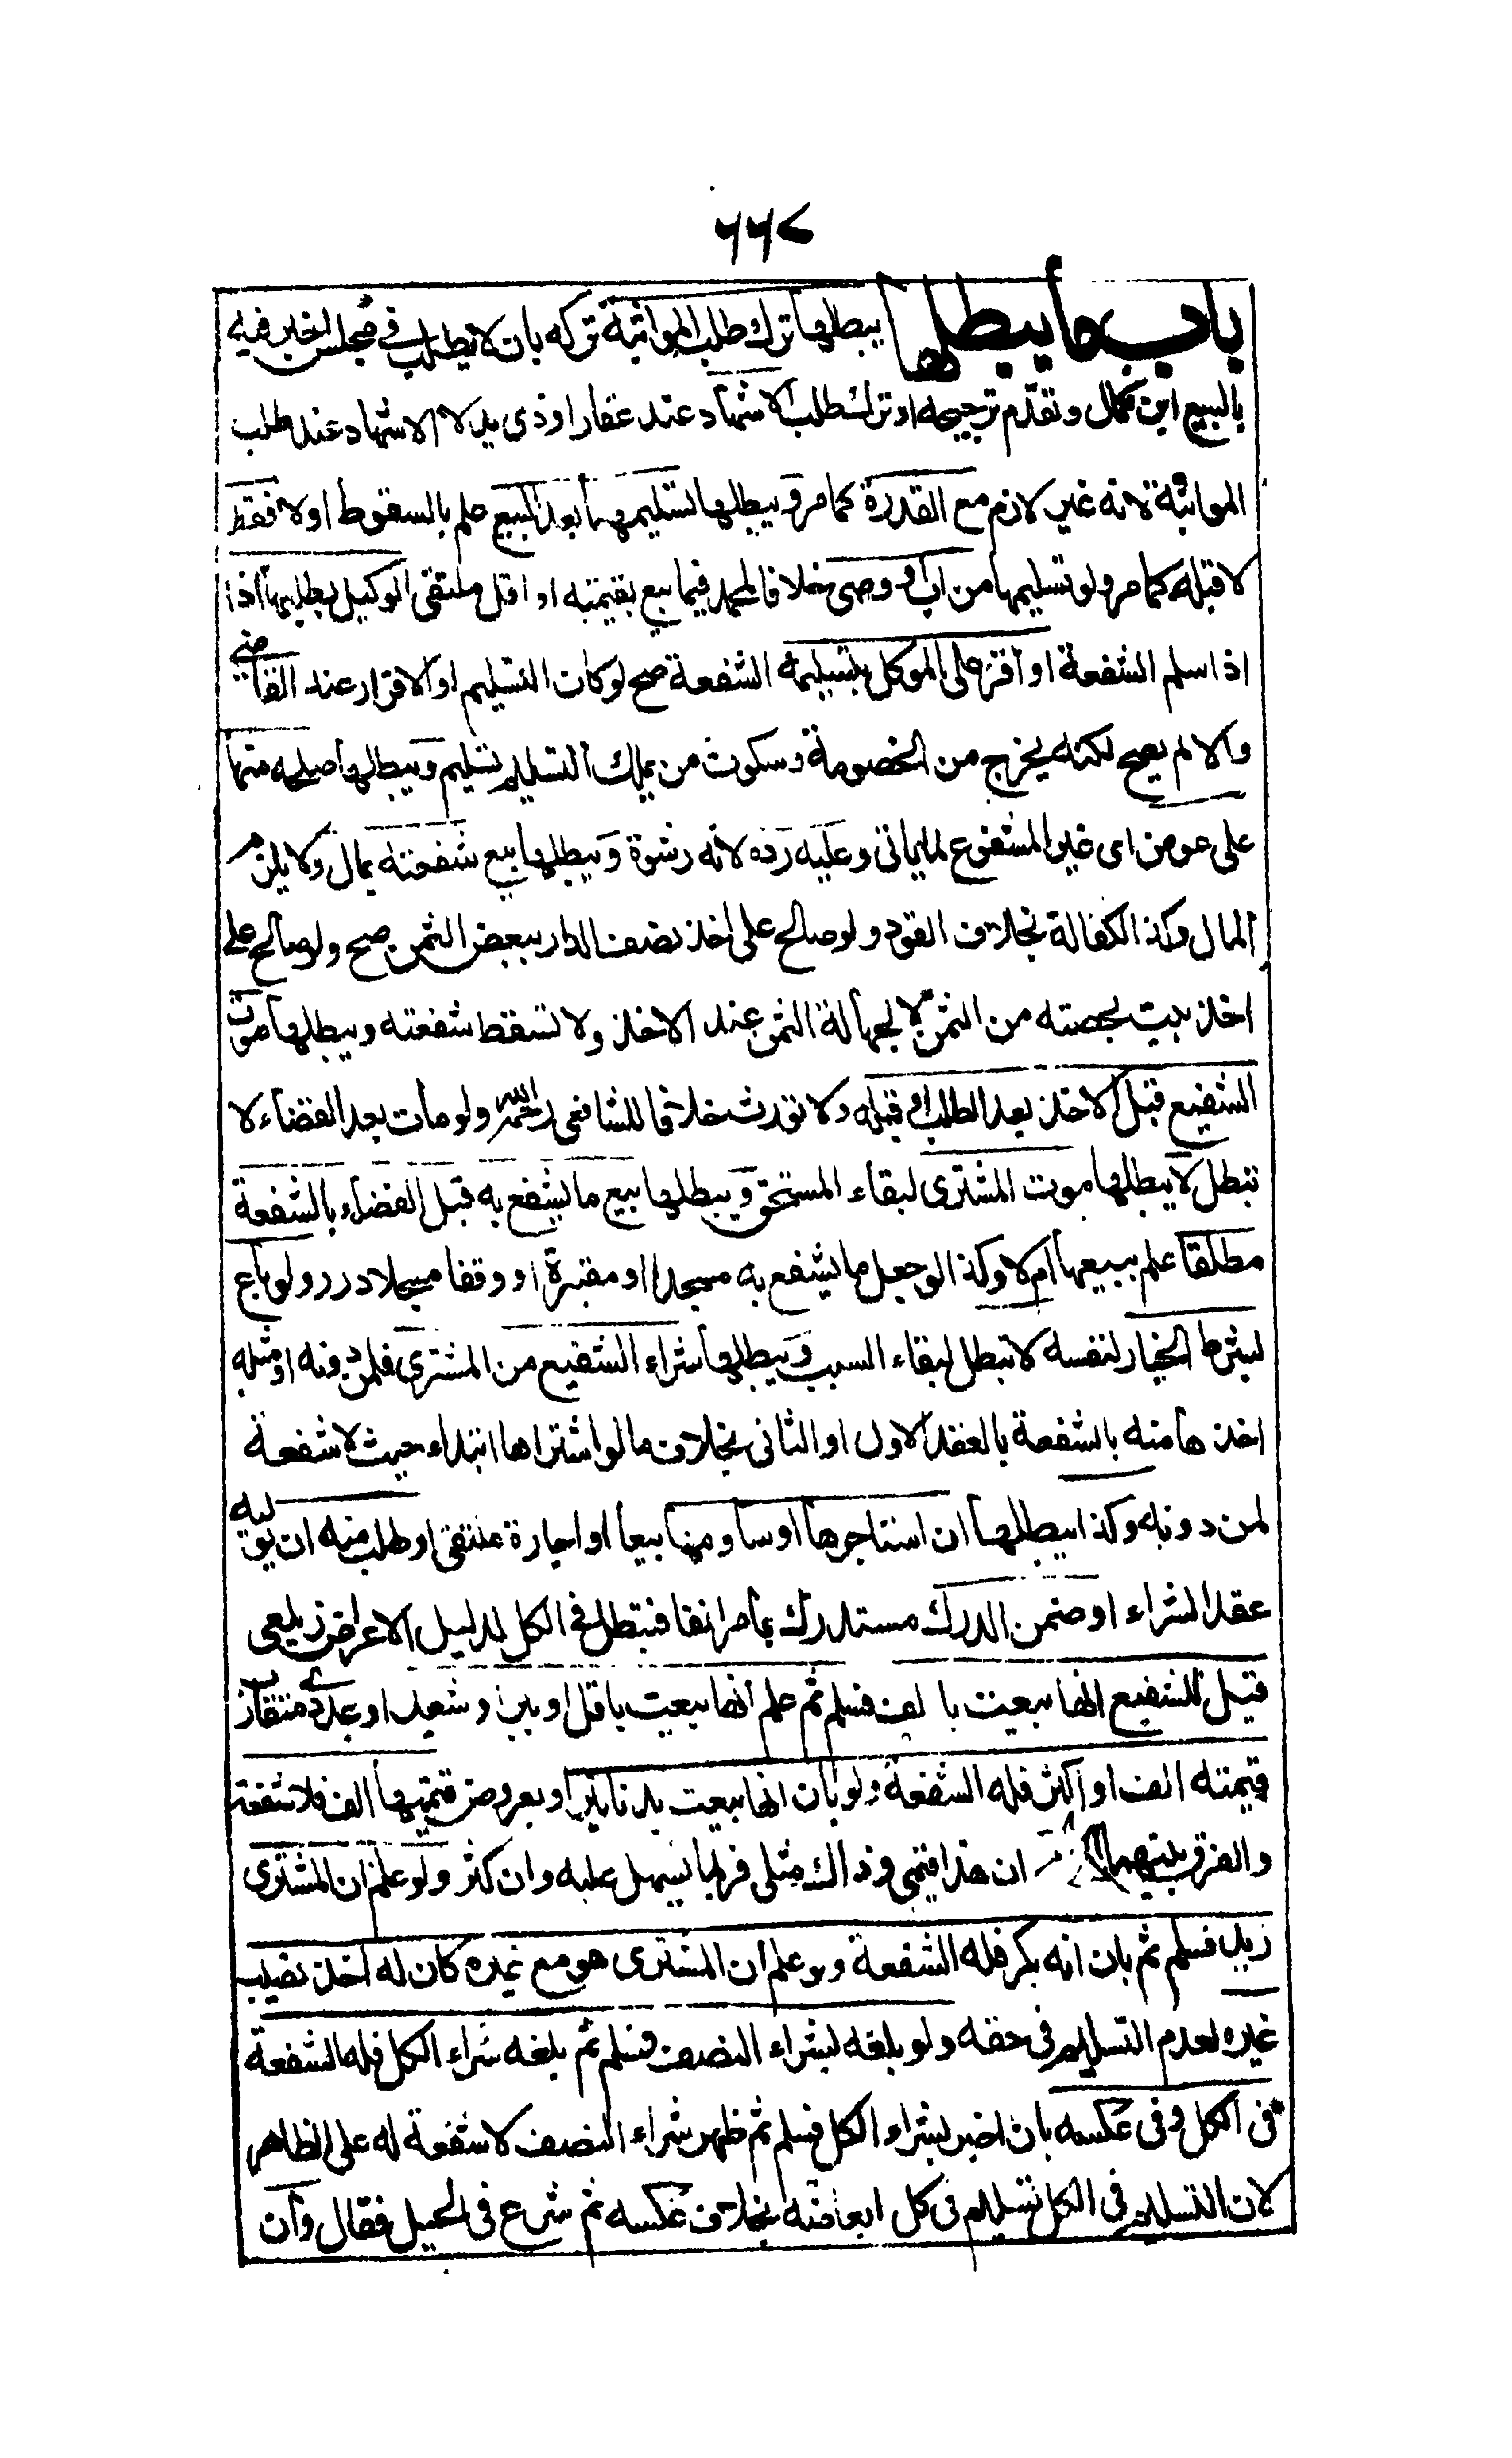 ٦٦٧
باب ما يبطلها يبطلها ترك طلب المواثبة تركه بان لا يطلب في مجلس اخبر فيه
بالبيع ابن كمال وتقدّم ترجيحه او ترك طلب الاشهاد عند عقار او ذي يد لا الاشهاد عند طلب
المواثبة لانه غير لازم مع القدرة كما مر ويبطلها تسليمها بعد البيع علم بالسقوط اولا فقط
لا قبله كما مر ولو تسليمها من اب ووصي خلافا لمحمد فيما بيع بقيمته او اقل ملتقى الوكيل بطلبها اذا
اذا سلم الشفعة او اقر على الموكل بتسليمه الشفعة صح لو كان التسليم او الاقرار عند القاضي
والا لم يصح لكنه يخرج من الخصومة وسكوت من يملك التسليم تسليم ويبطلها صلحه منها
على عوض اى غير المشفوع لما ياتى وعليه رده لانه رشوة ويبطلها بيع شفعته بمال ولا يلزم
المال وكذا الكفالة بخلاف القود ولو صالح على اخذ نصف الدار ببعض الثمن صح ولو صالح على
اخذ بيت بحصته من الثمن لا لجهالة الثمن عند الاخذ ولا تسقط شفعته ويبطلها موت
الشفيع قبل الاخذ بعد الطلب او قبله ولا تورث خلافا للشافعى رحمه الله ولو مات بعد القضاء لا
تبطل لا يبطلها موت المشترى لبقاء المستحق ويبطلها بيع ما يشفع به قبل القضاء بالشفعة
مطلقا علم ببيعها ام لا وكذا لو جعل ما يشفع به مسجدا او مقبرة او وقفا مسجلا درر ولو باع
بشرط الخيار لنفسه لا تبطل لبقاء السبب ويبطلها شراء الشفيع من المشترى فلمن دونه او مثله
اخذها منه بالشفعة بالعقد الاول او الثانى بخلاف ما لو اشتراها ابتداء حيث لا شفعة
لمن دونه وكذا يبطلها ان استاجرها او ساومها بيعا او اجارة ملتقى او طلب منه ان يوليه
عقد الشراء او ضمن الدرك مستدرك بما مر انفا فتبطل في الكل لدليل الاعراض زيلعى
قيل للشفيع انها بيعت بالف فسلم ثم علم انها بيعت باقل او ببر او شعير او عددى متقارب
قيمته الف او اكثر فله الشفعة ولو بان انها بيعت بدنانير او بعروض قيمتها الف فلا شفعة
والفرق بينهما ان هذا قيمى وذاك مثلى فربما يسهل عليه وان كثر ولو علم ان المشترى
زيد فسلم ثم بان انه بكر فله الشفعة ولو علم ان المشترى هو مع غيره كان له اخذ نصيب
غيره لعدم التسليم فى حقه ولو بلغه بشراء النصف فسلم ثم بلغه شراء الكل فله الشفعة
فى الكل وفى عكسه بان اخبر بشراء الكل فسلم ثم ظهر شراء النصف لا شفعة له على الظاهر
لان التسليم فى الكل تسليم فى كل ابعاضه بخلاف عكسه ثم شرع فى الحيل فقال وان